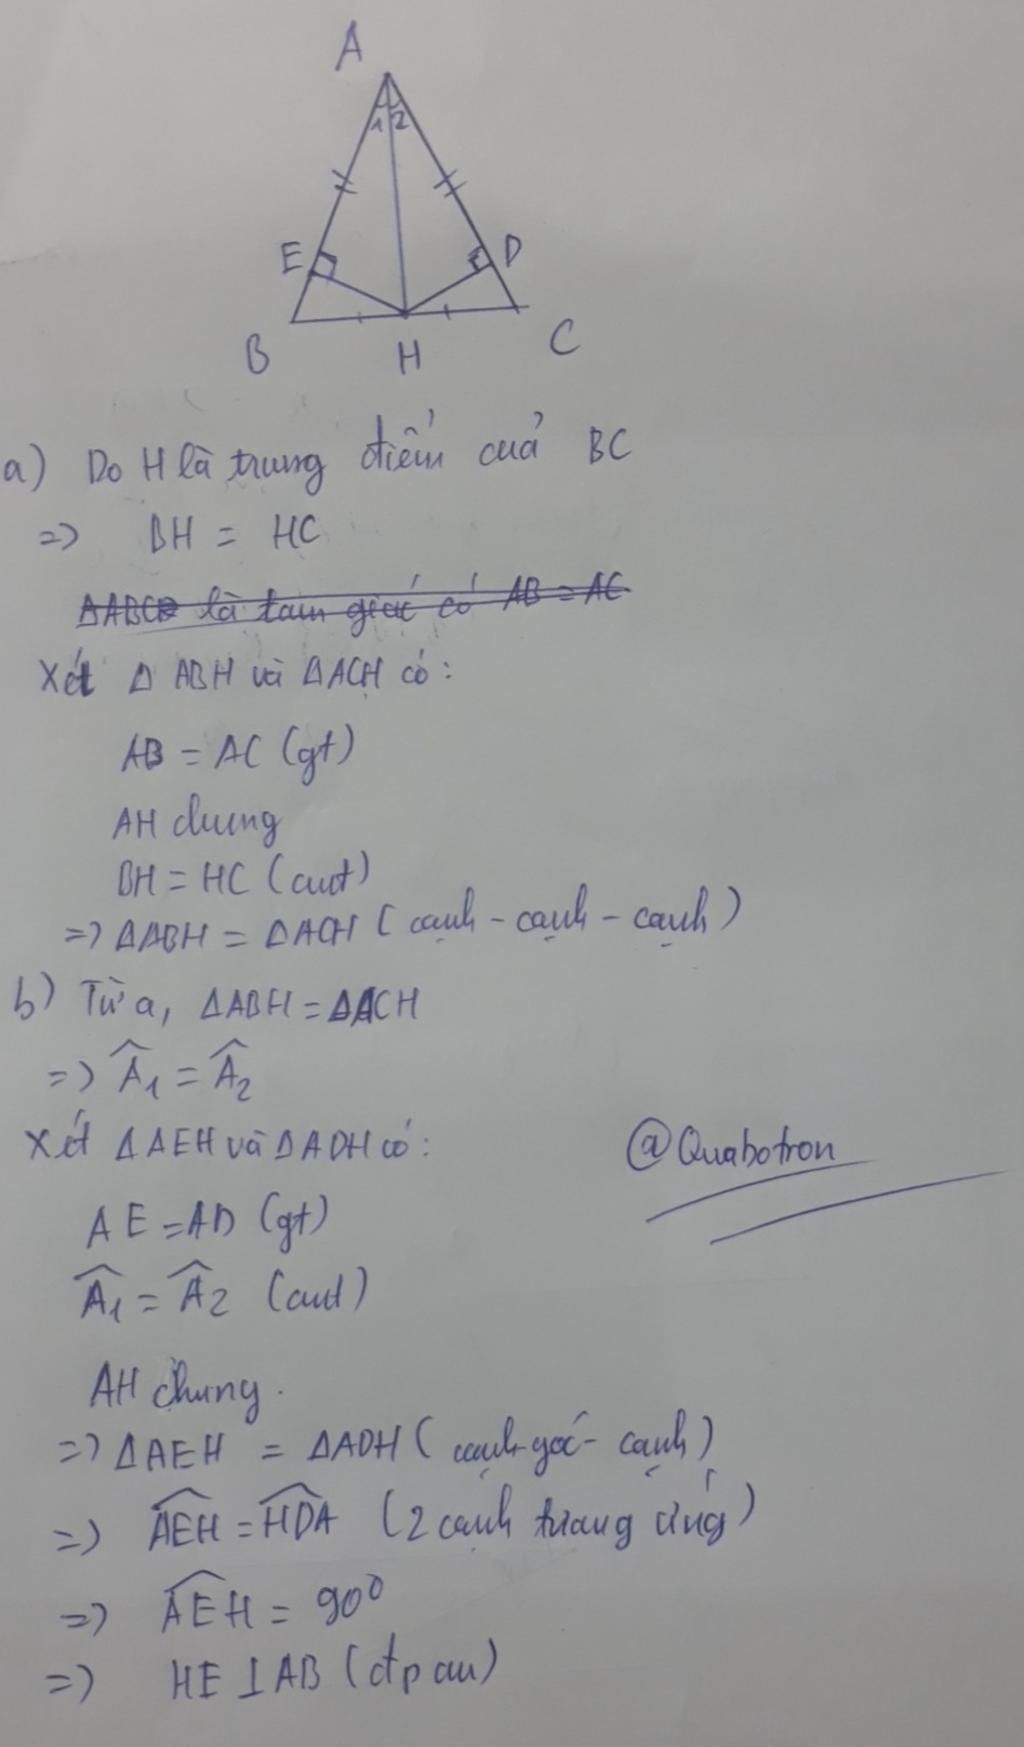 A
1 2
E D
B H C
a) Do H là trung điểm của BC
=> BH = HC
ΔABC là tam giác có AB = AC
Xét Δ ABH và ΔACH có:
AB = AC (gt)
AH chung
BH = HC (cmt)
=> ΔABH = ΔACH ( cạnh - cạnh - cạnh )
b) Từ a, ΔABH = ΔACH
=> Â1 = Â2
Xét ΔAEH và ΔADH có:
@Quabotron
AE = AD (gt)
Â1 = Â2 (cmt)
AH chung.
=> ΔAEH = ΔADH ( cạnh-góc - cạnh )
=> \widehat{AEH} = \widehat{HDA} (2 cạnh tương ứng)
=> \widehat{AEH} = 90°
=> HE ⊥ AB (đpcm)